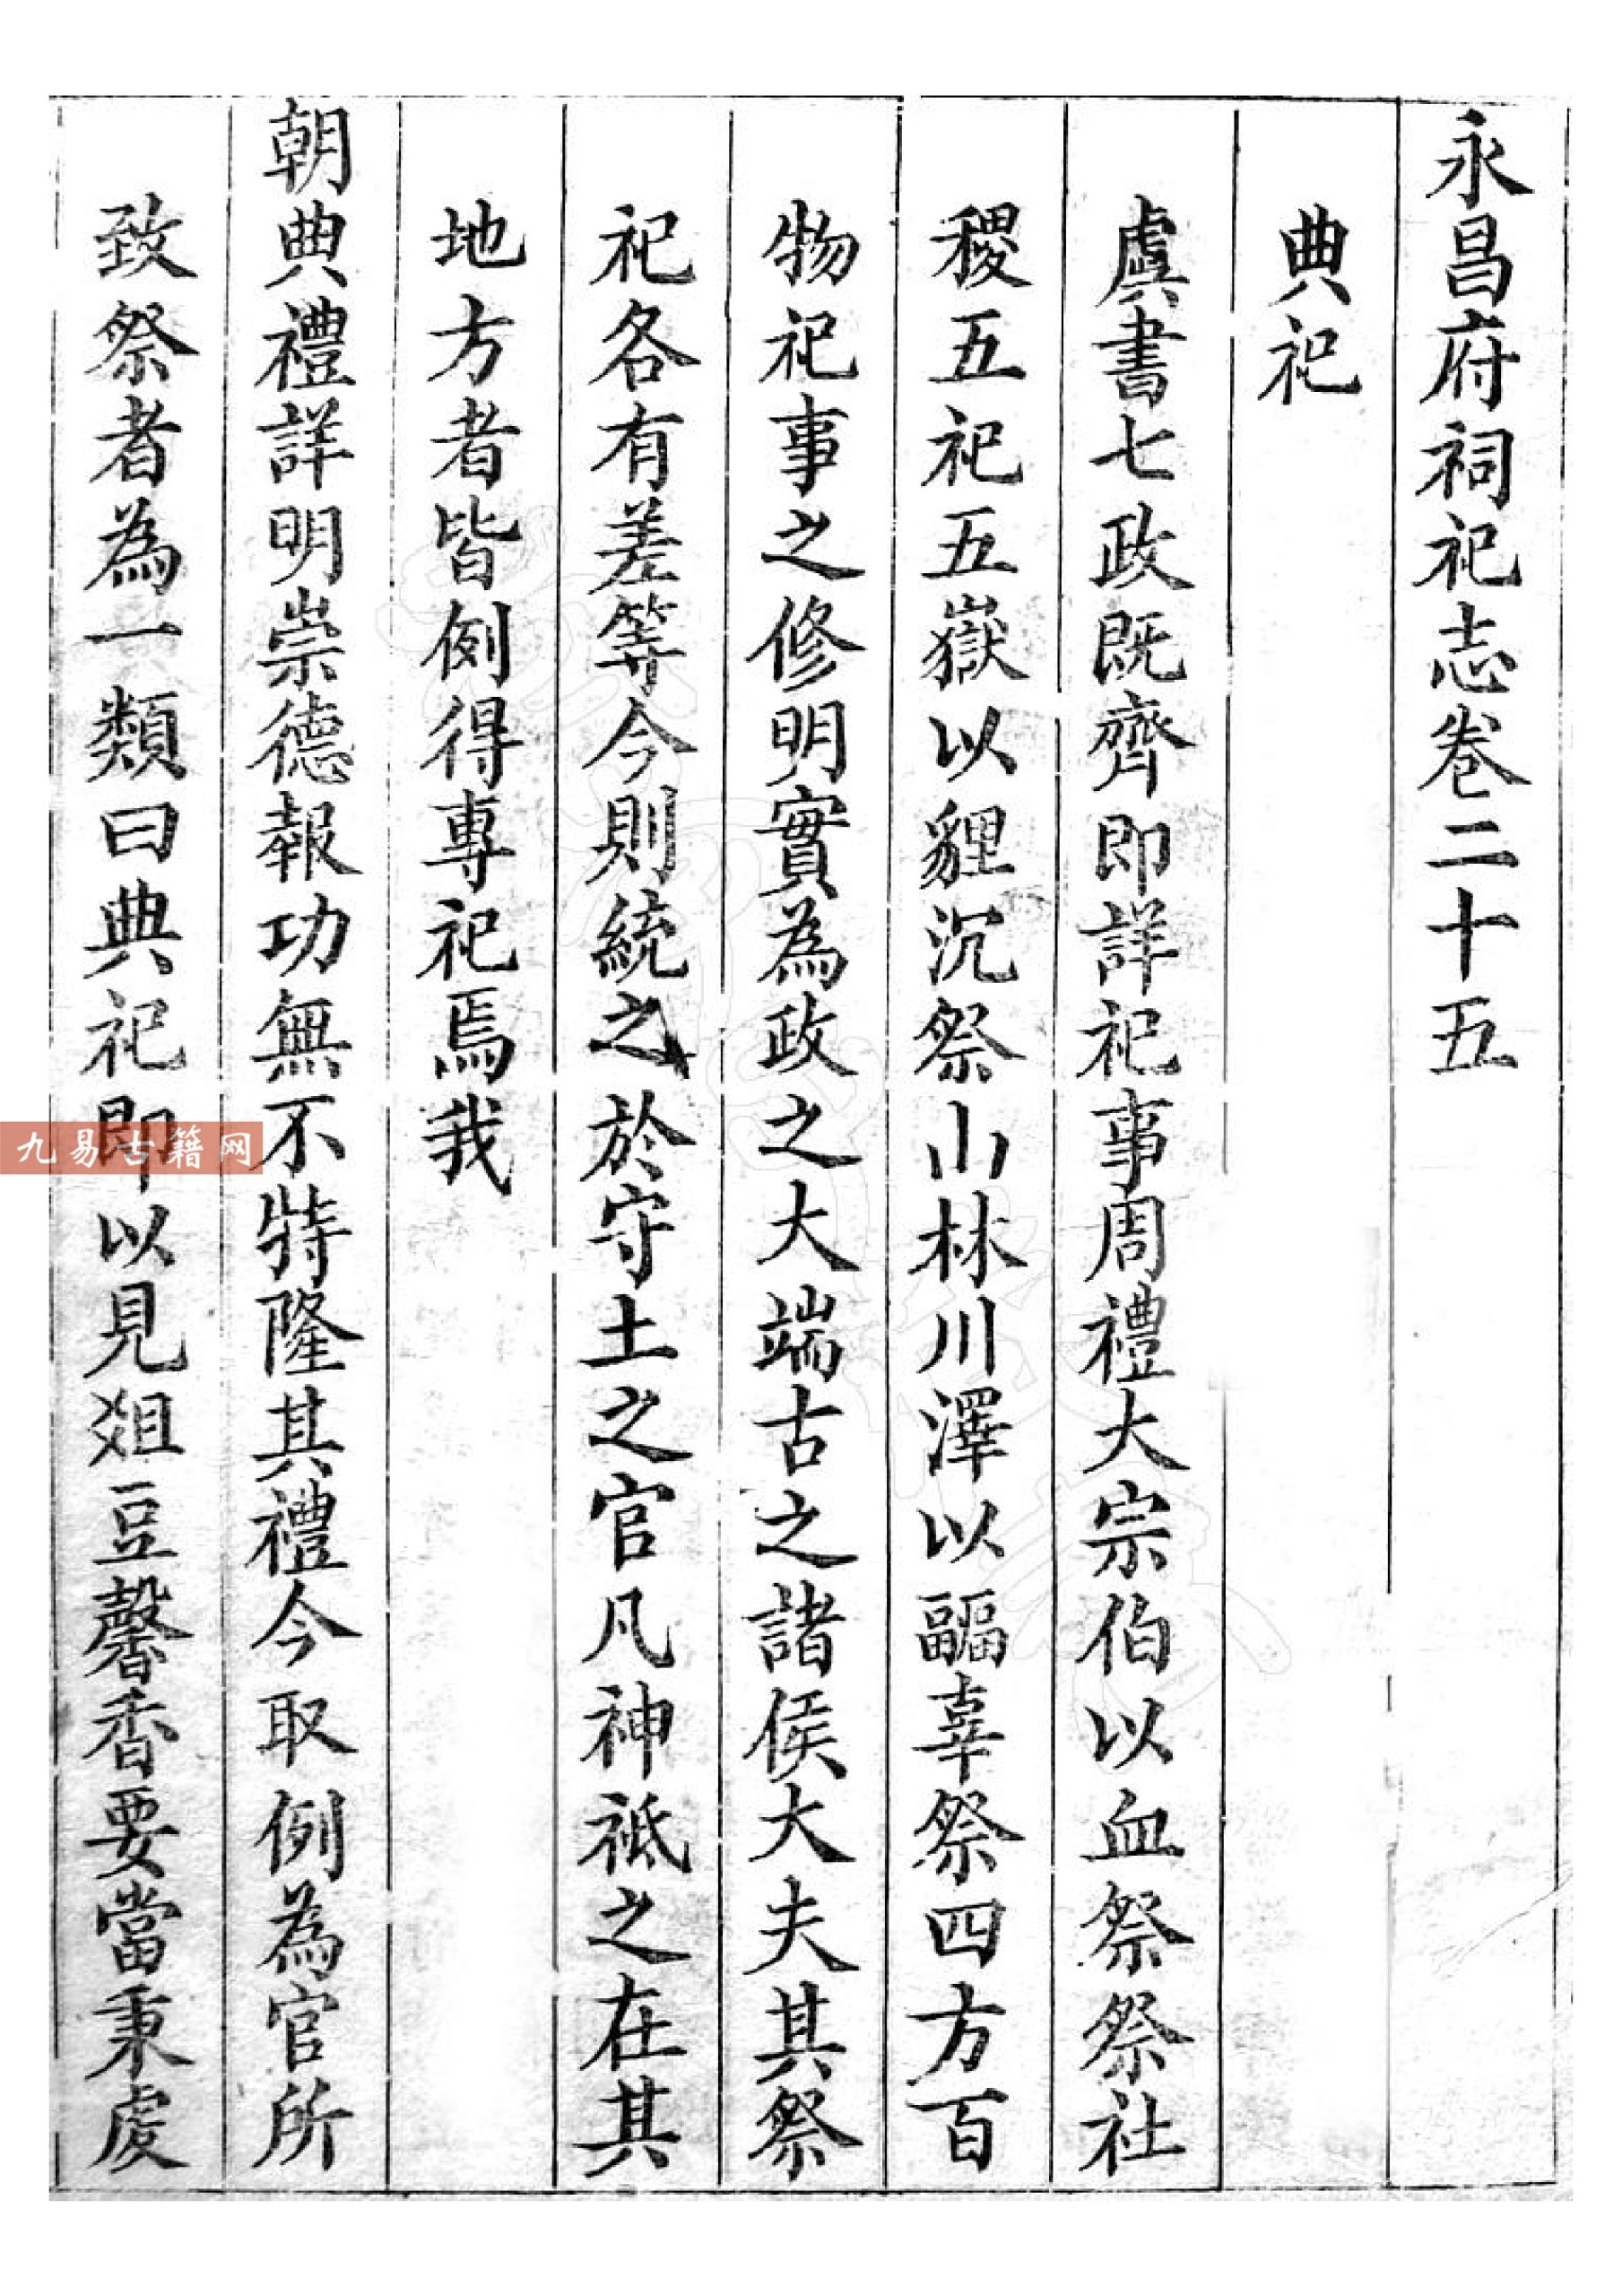 永昌府祠祀志卷二十五
典祀
虞書七政既齊即詳祀事周禮大宗伯以血祭祭社
稷五祀五嶽以貍沉祭山林川澤以疈辜祭四方百
物祀事之修明實為政之大端古之諸侯大夫其祭
祀各有差等今則統之於守土之官凡神祇之在其
地方者皆例得專祀焉我
朝典禮詳明崇德報功無不特隆其禮今取例為官所
致祭者為一類曰典祀即以見俎豆馨香要當秉虔
九易古籍网